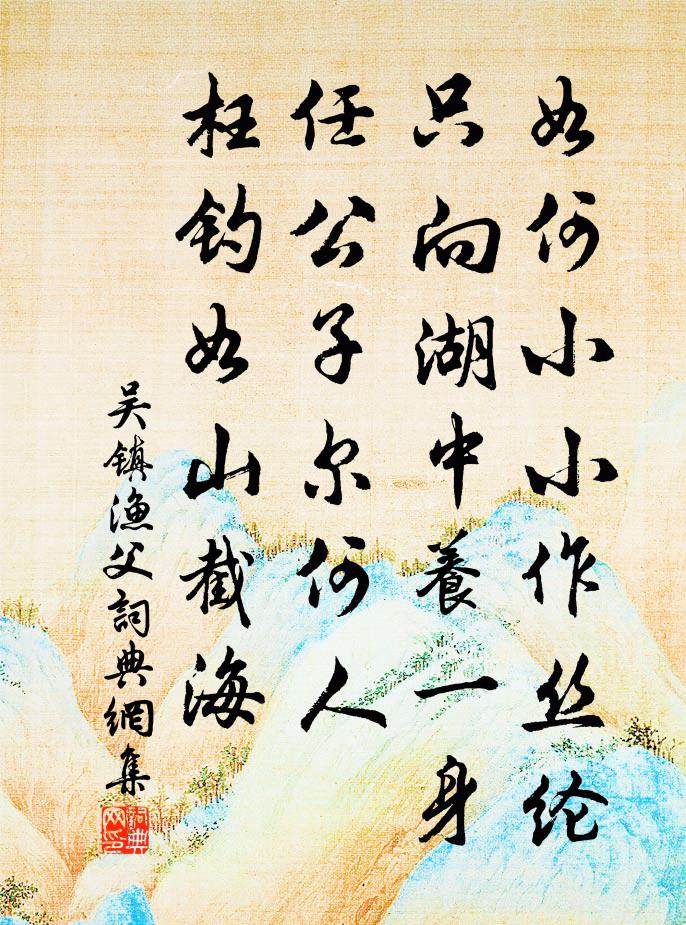 如何小小作丝纶
只向湖中養一身
任公子尔何人
枉钓如山截海
吴镇渔父詞典網集
詞典网印